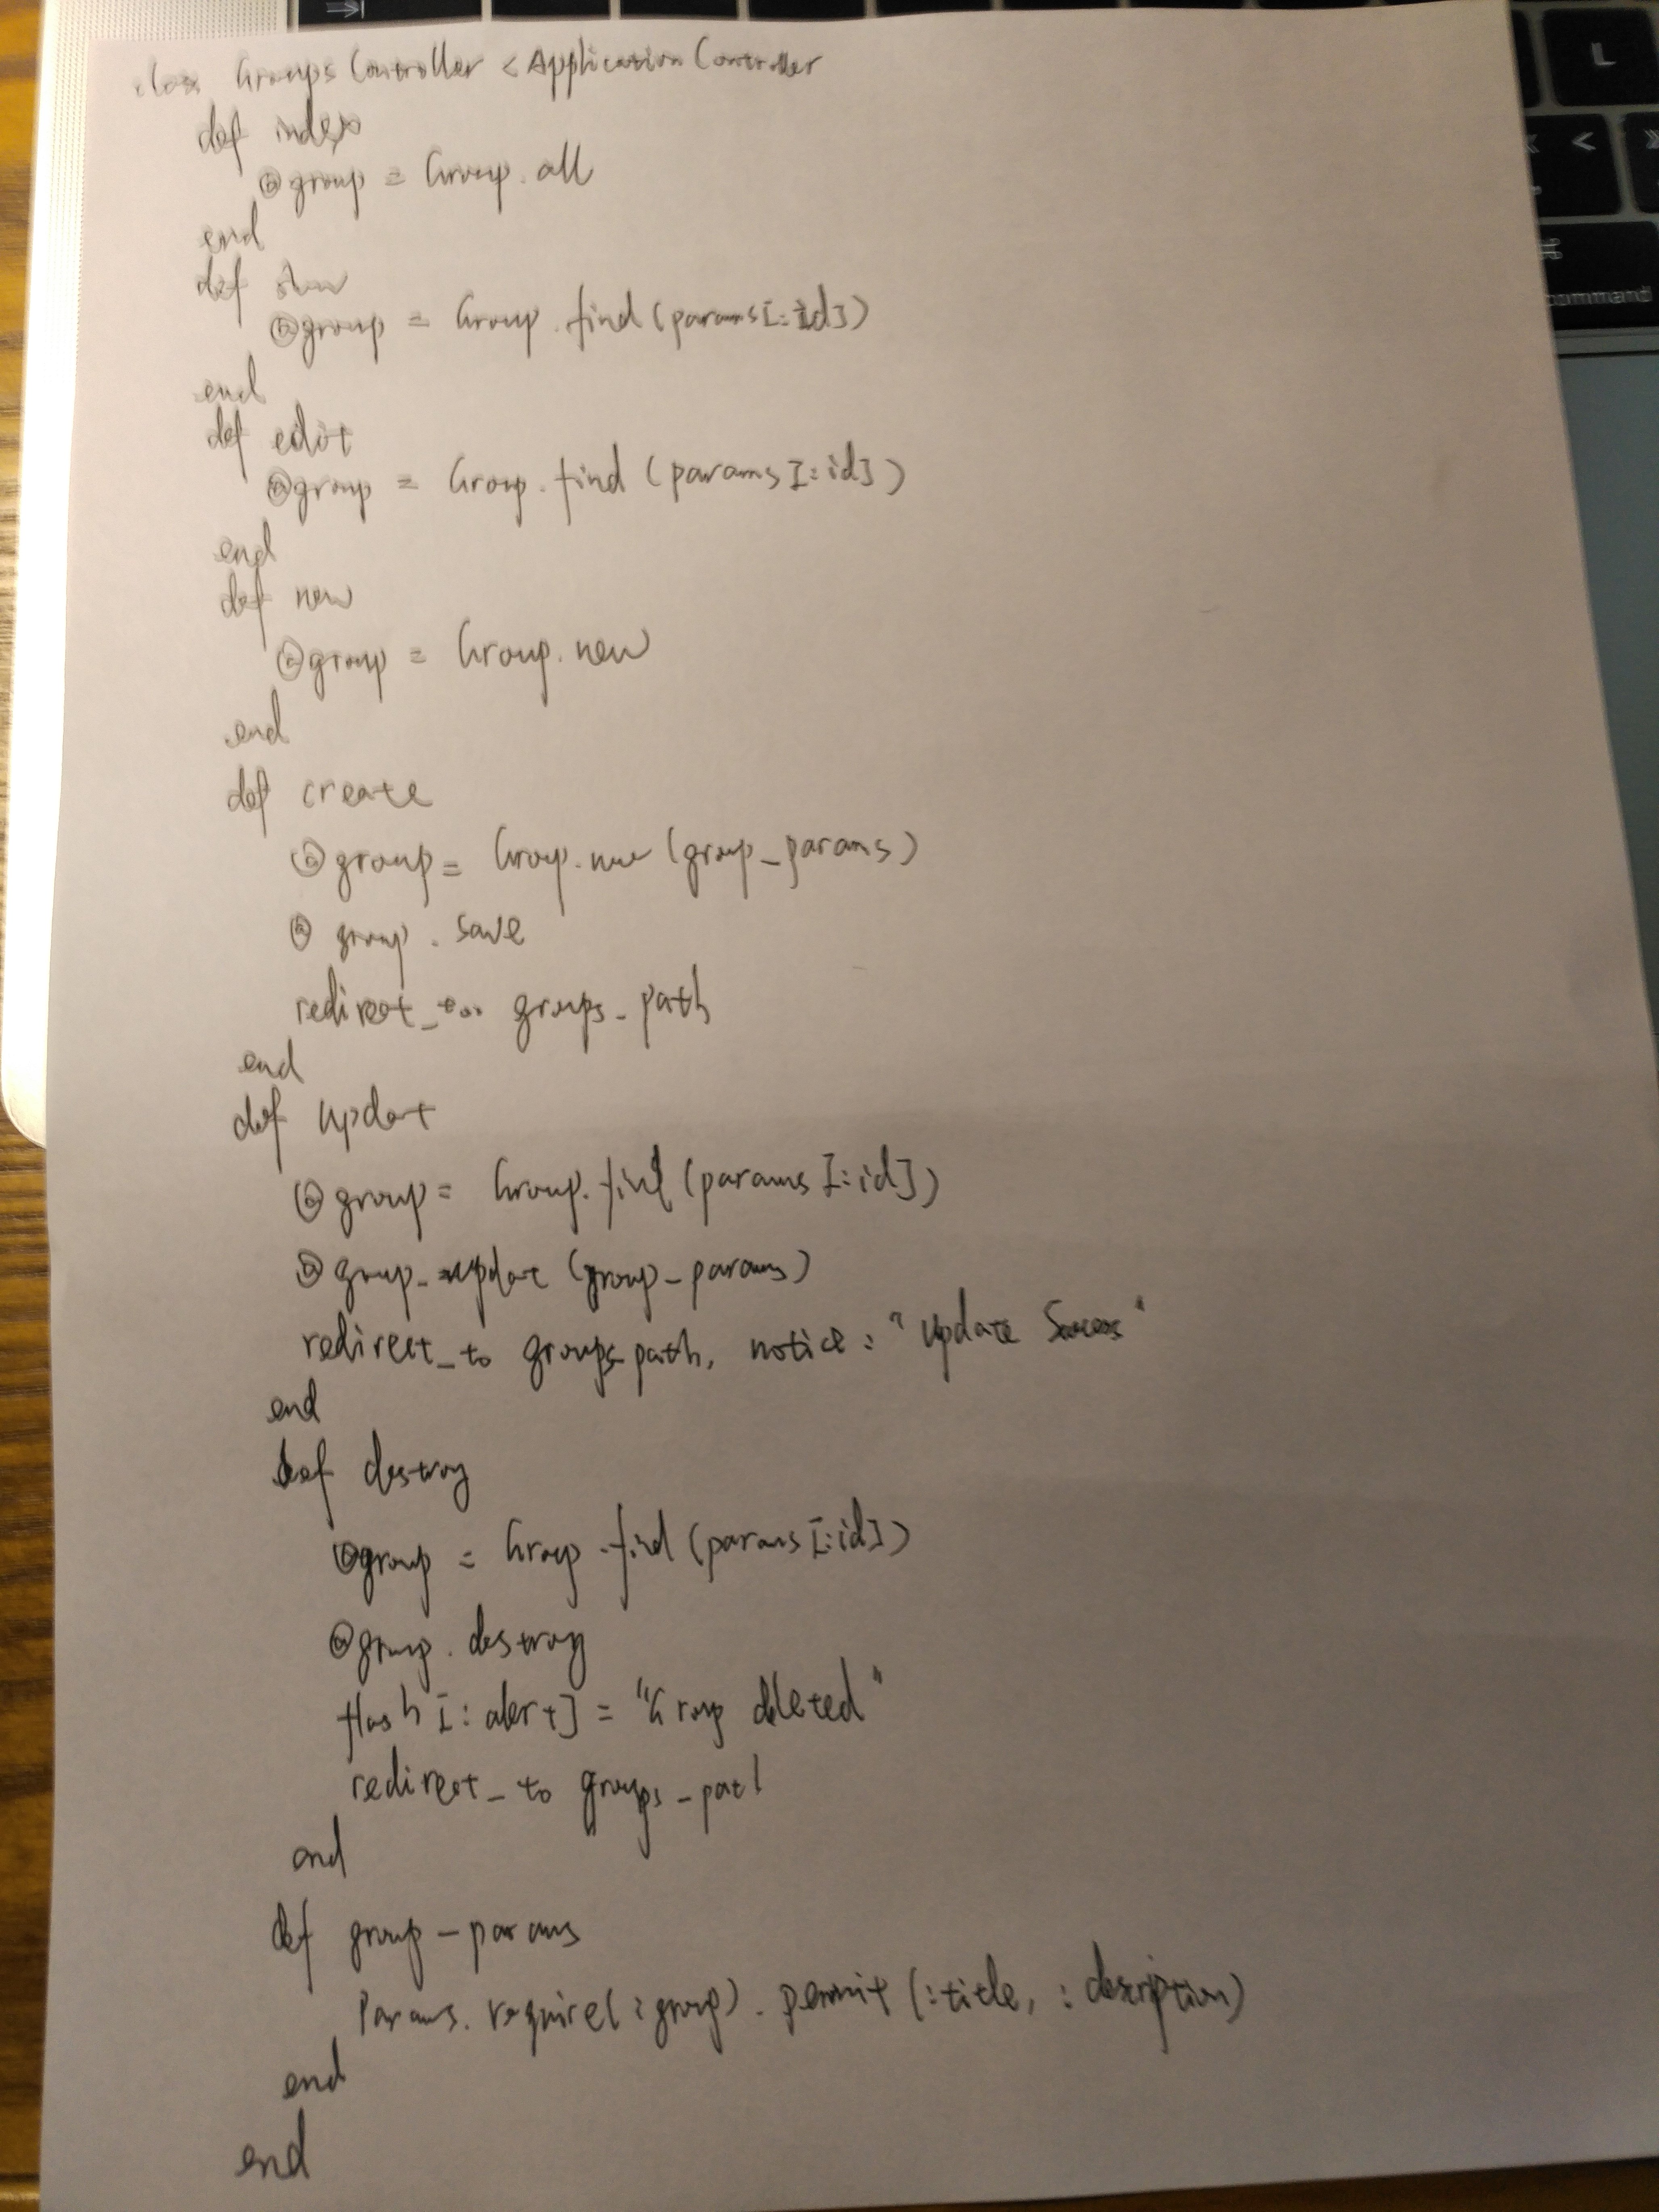 class GroupsController < ApplicationController
def index
@group = Group.all
end
def show
@group = Group.find(params[:id])
end
def edit
@group = Group.find(params[:id])
end
def new
@group = Group.new
end
def create
@group = Group.new(group_params)
@group.save
redirect_to groups_path
end
def updat
@group = Group.find(params[:id])
@group.update(group_params)
redirect_to groups_path, notice: "Update Success"
end
def destroy
@group = Group.find(params[:id])
@group.destroy
flash[:alert] = "Group deleted"
redirect_to groups_path
end
def group_params
params.require(:group).permit(:title, :description)
end
end
L
<
command